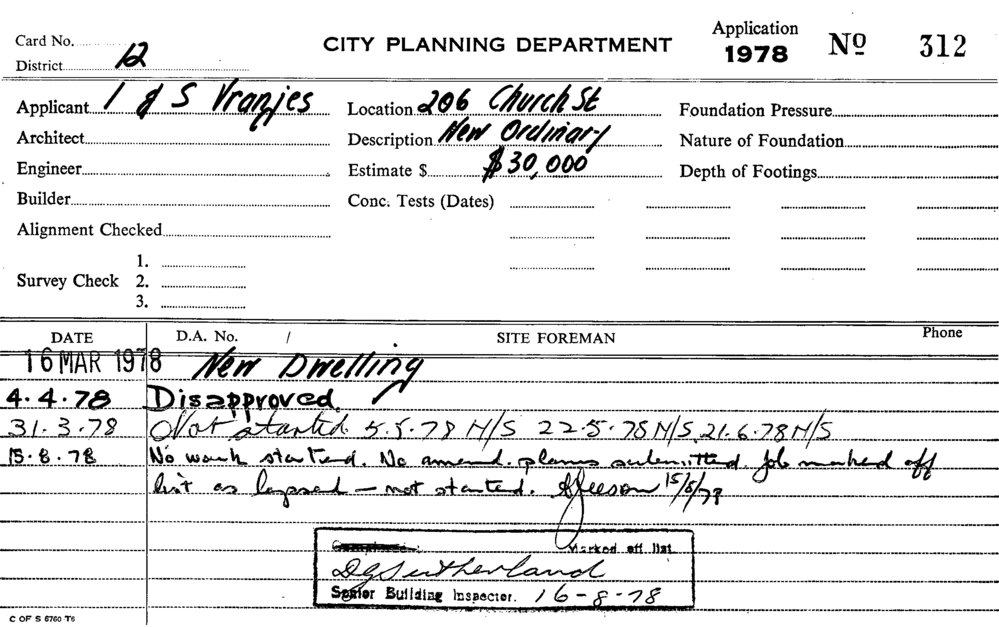 Card No.
CITY PLANNING DEPARTMENT
Application 1978 Nº 312
District 12
Applicant I & S Vranjes
Location 206 Church St
Foundation Pressure
Architect
Description New Ordinary
Nature of Foundation
Engineer
Estimate $ $30,000
Depth of Footings
Builder
Conc. Tests (Dates)
Alignment Checked
Survey Check 1.
2.
3.
DATE D.A. No. / SITE FOREMAN Phone
16 MAR 1978 New Dwelling
4.4.78 Disapproved.
31.3.78 Not started 5.5.78 N/S 22-5-78 N/S, 21.6.78 N/S
15.8.78 No work started. No amend. plans submitted. Job marked off
list as lapsed — not started. 15/8/78
Marked off list
DG Sutherland
Senior Building Inspector. 16-8-78
C OF S 6760 T6